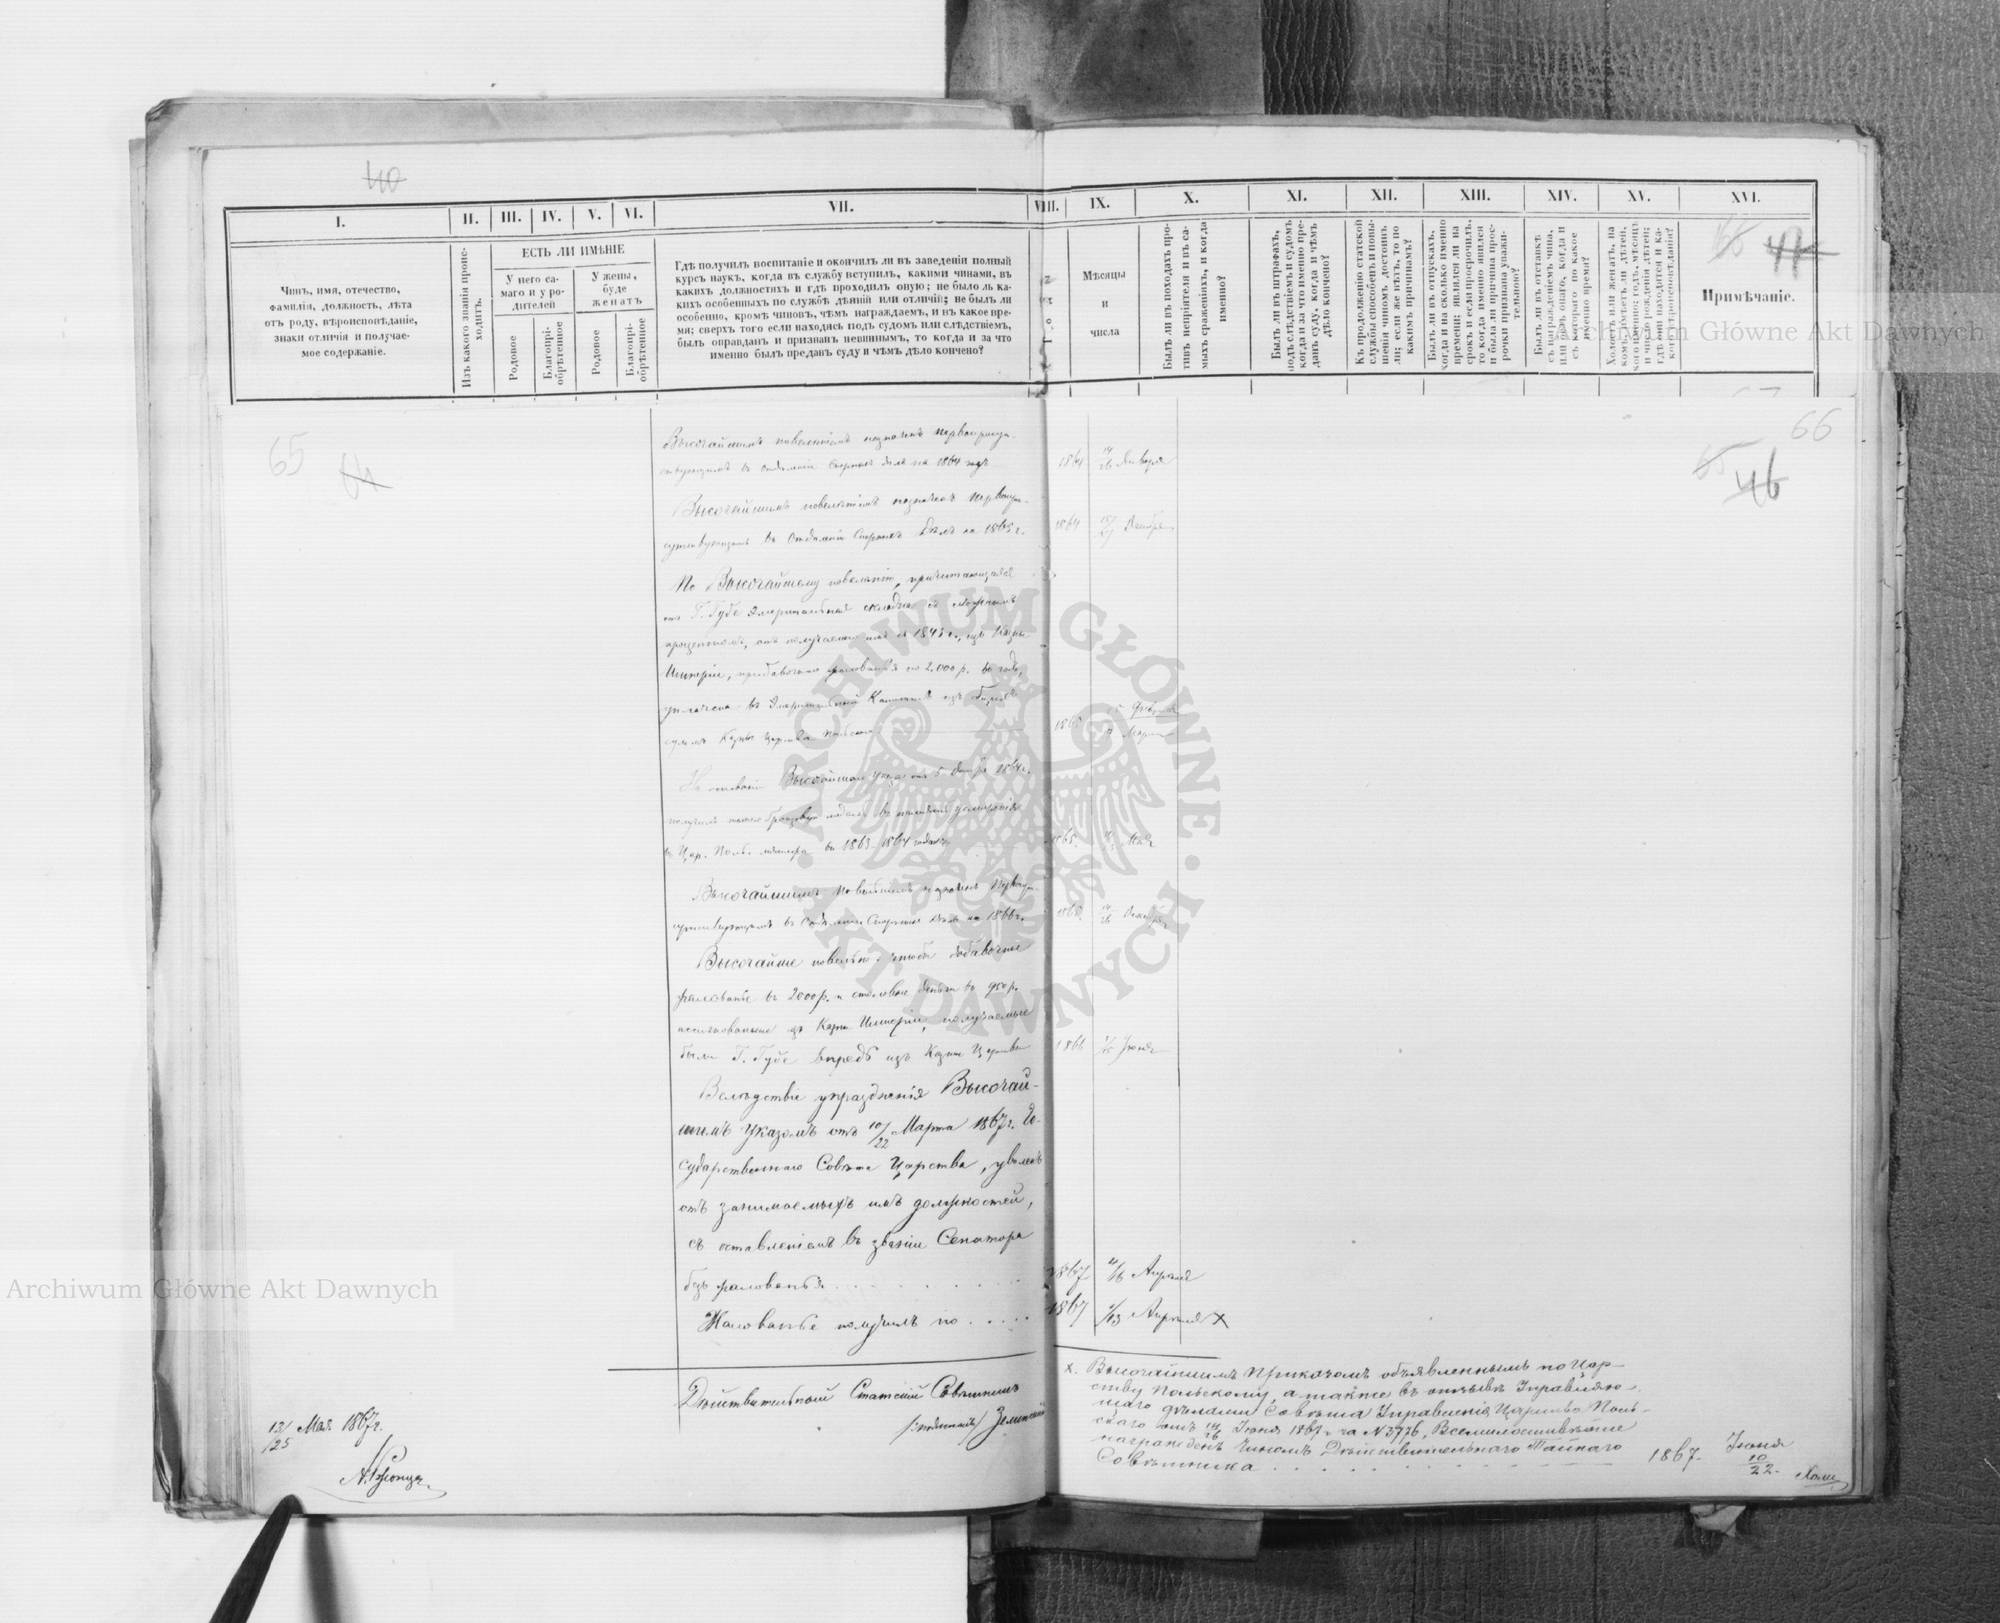 40
I. II. III. IV. V. VI. VII. VIII. IX. X. XI. XII. XIII. XIV. XV. XVI.
Чинъ, имя, отечество,
фамилія, должность, лѣта
отъ роду, вѣроисповѣданіе,
знаки отличія и получае-
мое содержаніе.
Изъ какого званія проис-
ходитъ.
ЕСТЬ ЛИ ИМѢНІЕ
У него са-
маго и у ро-
дителей
У жены,
буде
женатъ
Родовое
Благопрі-
обрѣтенное
Родовое
Благопрі-
обрѣтенное
Гдѣ получилъ воспитаніе и окончилъ ли въ заведеніи полный
курсъ наукъ, когда въ службу вступилъ, какими чинами, въ
какихъ должностяхъ и гдѣ проходилъ оную; не было ль ка-
кихъ особенныхъ по службѣ дѣяній или отличій; не былъ ли
особенно, кромѣ чиновъ, чѣмъ награждаемъ, и въ какое вре-
мя; сверхъ того если находясь подъ судомъ или слѣдствіемъ,
былъ оправданъ и признанъ невиннымъ, то когда и за что
именно былъ преданъ суду и чѣмъ дѣло кончено?
Мѣсяцы
и
числа
Былъ ли въ походахъ про-
тивъ непріятеля и въ са-
мыхъ сраженіяхъ, и когда
именно?
Былъ ли въ штрафахъ,
подъ слѣдствіемъ и судомъ
когда и за что именно пре-
данъ суду, когда и чѣмъ
дѣло кончено?
Къ продолженію статской
службы способенъ и повы-
шенія чиномъ достоинъ
ли; если же нѣтъ, то по
какимъ причинамъ?
Былъ ли въ отпускахъ,
когда и на сколько именно
времени; явился ли на
срокъ и если просрочилъ,
то когда именно явился
и была ли причина прос-
рочки признана уважи-
тельною?
Былъ ли въ отставкѣ
съ награжденіемъ чина,
или безъ онаго, когда и
съ котораго по какое
именно время?
Холостъ или женатъ, на
комъ, имѣетъ ли дѣтей,
кого именно; годъ, мѣсяцъ
и число рожденія дѣтей;
гдѣ они находятся и ка-
кого вѣроисповѣданія?
Примѣчаніе.
47
65
64
66
65
46
Высочайшимъ повелѣніемъ назначенъ первоприсут-
ствующимъ въ Отдѣленіи Спорныхъ дѣлъ на 1864 годъ 1864 14/26 Января
Высочайшимъ повелѣніемъ назначенъ Первопри-
сутствующимъ въ Отдѣленіи Спорныхъ Дѣлъ на 1865 г. 1864 15/27 Декабря
По Высочайшему повелѣнію, причитающаяся
отъ Г. Губе Эмеритальная складка съ
процентомъ, отъ получаемаго имъ съ 1845 г., изъ Казны
Имперіи, прибавочнаго жалованья по 2.000 р. въ годъ,
уплачена въ Эмеритальный Капиталъ изъ
суммъ Казны Царства Польскаго 1865 Февраля Марта
На основаніи Высочайшаго Указа отъ 1864 г.
получилъ бронзовую медаль въ память усмиренія
въ Цар. Пол. мятежа въ 1863-1864 годахъ 1865. Мая
Высочайшимъ повелѣніемъ назначенъ Первопри-
сутствующимъ въ Отдѣленіи Спорныхъ Дѣлъ на 1866 г. 1865 14/26 Декабря
Высочайше повелѣно: чтобы добавочное
жалованье въ 2000 р. и столовые деньги въ 950 р.
ассигнованные изъ Казны Имперіи, получаемые
были Г. Губе впредь изъ Казны Царства 1866 Іюня
Вслѣдствіе упраздненія Высочай-
шимъ Указомъ отъ 10/22 Марта 1867 г. Го-
сударственнаго Совѣта Царства, уволенъ
отъ занимаемыхъ имъ должностей,
съ оставленіемъ въ званіи Сенатора
безъ жалованья 1867 4/16 Апрѣля
Жалованье получилъ по 1867 1/13 Апрѣля X
Дѣйствительный Статскій Совѣтникъ
(подписалъ)
13/25 Мая 1867 г.
X. Высочайшимъ Приказомъ объявленнымъ по Цар-
ству Польскому, а также въ отзывѣ Управляю-
щаго дѣлами Совѣта Управленія Царства Поль-
скаго отъ 14/26 Іюня 1867 г. за N 3776, Всемилостивѣйше
награжденъ Чиномъ Дѣйствительнаго Тайнаго
Совѣтника 1867. Іюня 10/22.
Archiwum Główne Akt Dawnych
Archiwum Główne Akt Dawnych
ARCHIWUM GŁÓWNE
AKT DAWNYCH